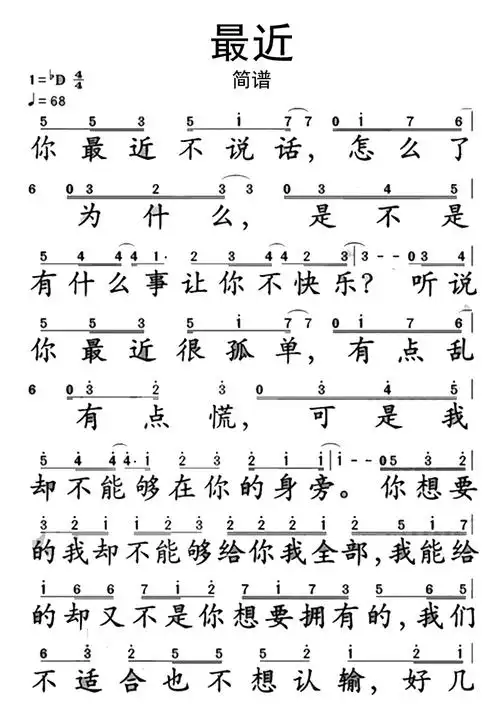 最近
简谱
1=♭D 4/4
♩=68
5 5 3 5 i 7 7 | 0 i 7 6 |
你最近不说话，怎么了
6 0 3 2 3 3 | 0 3 4 5 |
为什么，是不是
5 4 4 4 1· 2 3 4 4 2 3 | 3 - - 0 3 4 |
有什么事让你不快乐？听说
5 5 3 5 i 7 7 | 0 i 7 6 |
你最近很孤单，有点乱
6 0 3 2 3 | 0 3 4 5 |
有点慌，可是我
5 4 4 4· i 2 3 2 i i | i - - 0 5 3 2 |
却不能够在你的身旁。你想要
3 2 i i 2 3 2 2 i i 2 5 i 7
的我却不能够给你我全部，我能给
i 6 6 7 i 2 i 7 3 5 6 5 |
的却又不是你想要拥有的，我们
6 3 2 5 i 2 3 4 3 2 |
不适合也不想认输，好几